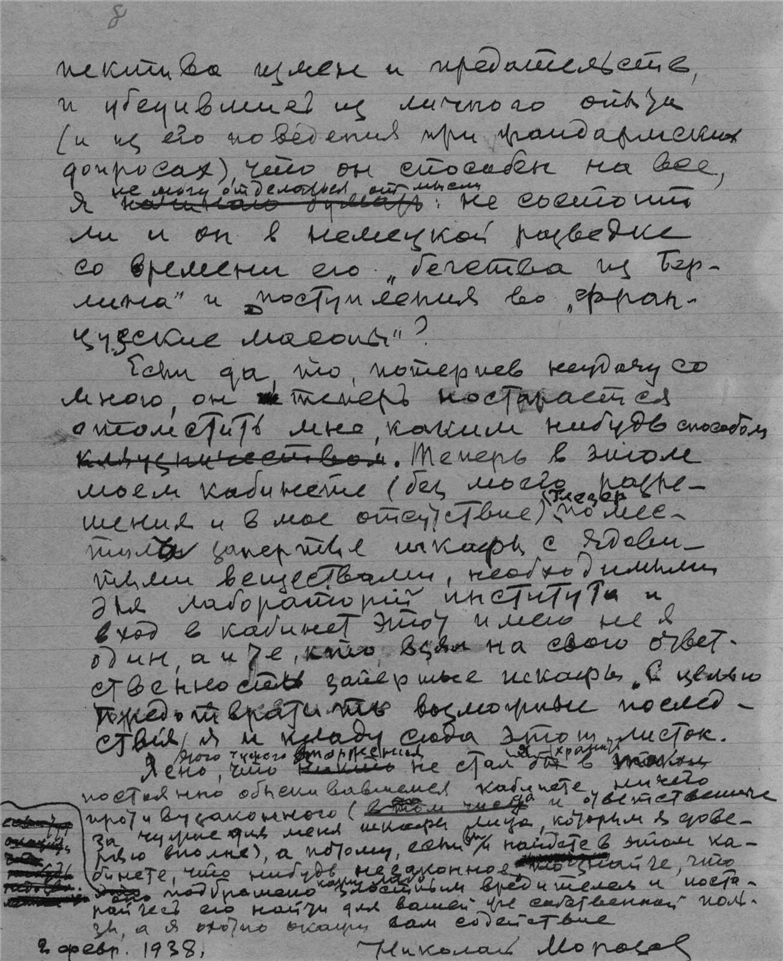 8
пектива измен и предательств,
и убедившись из личного опыта
(и из его поведения при жандармских
допросах), что он способен на все,
не могу отделаться от мысли
я начинаю думать: не состоит
ли и он в немецкой разведке
со времени его „бегства из Бер-
лина" и поступления во „фран-
цузские масоны"?
Если да, то, потерпев неудачу со
мною, он теперь постарается
отомстить мне, каким нибудь способом
кляузничеством. Теперь в этом
моем кабинете (без моего разре-
шения и в мое отсутствие) Глезер помес-
тила запертые шкафы с ядови-
тыми веществами, необходимыми
для лабораторий института и
вход в кабинет этот имею не я
один, а и те, кто взял на свою ответ-
ственность запертые шкафы. С целью
предотвратить возможные послед-
ствия, я и кладу сюда этот листок.
этого чужого вторжения
Ясно, что не стал бы я хранить в таком
постоянно обыскивавшемся кабинете ничего
противузаконного (в том числе и ответственные
за чужие для меня шкафы лица, которым я дове-
ряю вполне), а потому, если вы найдете в этом ка-
бинете, что нибудь незаконное, то знайте, что
оно подброшено злостным вредителем и поста-
райтесь его найти для вашей же собственной поль-
зы, а я охотно окажу вам содействие
2 февр. 1938. Николай Морозов